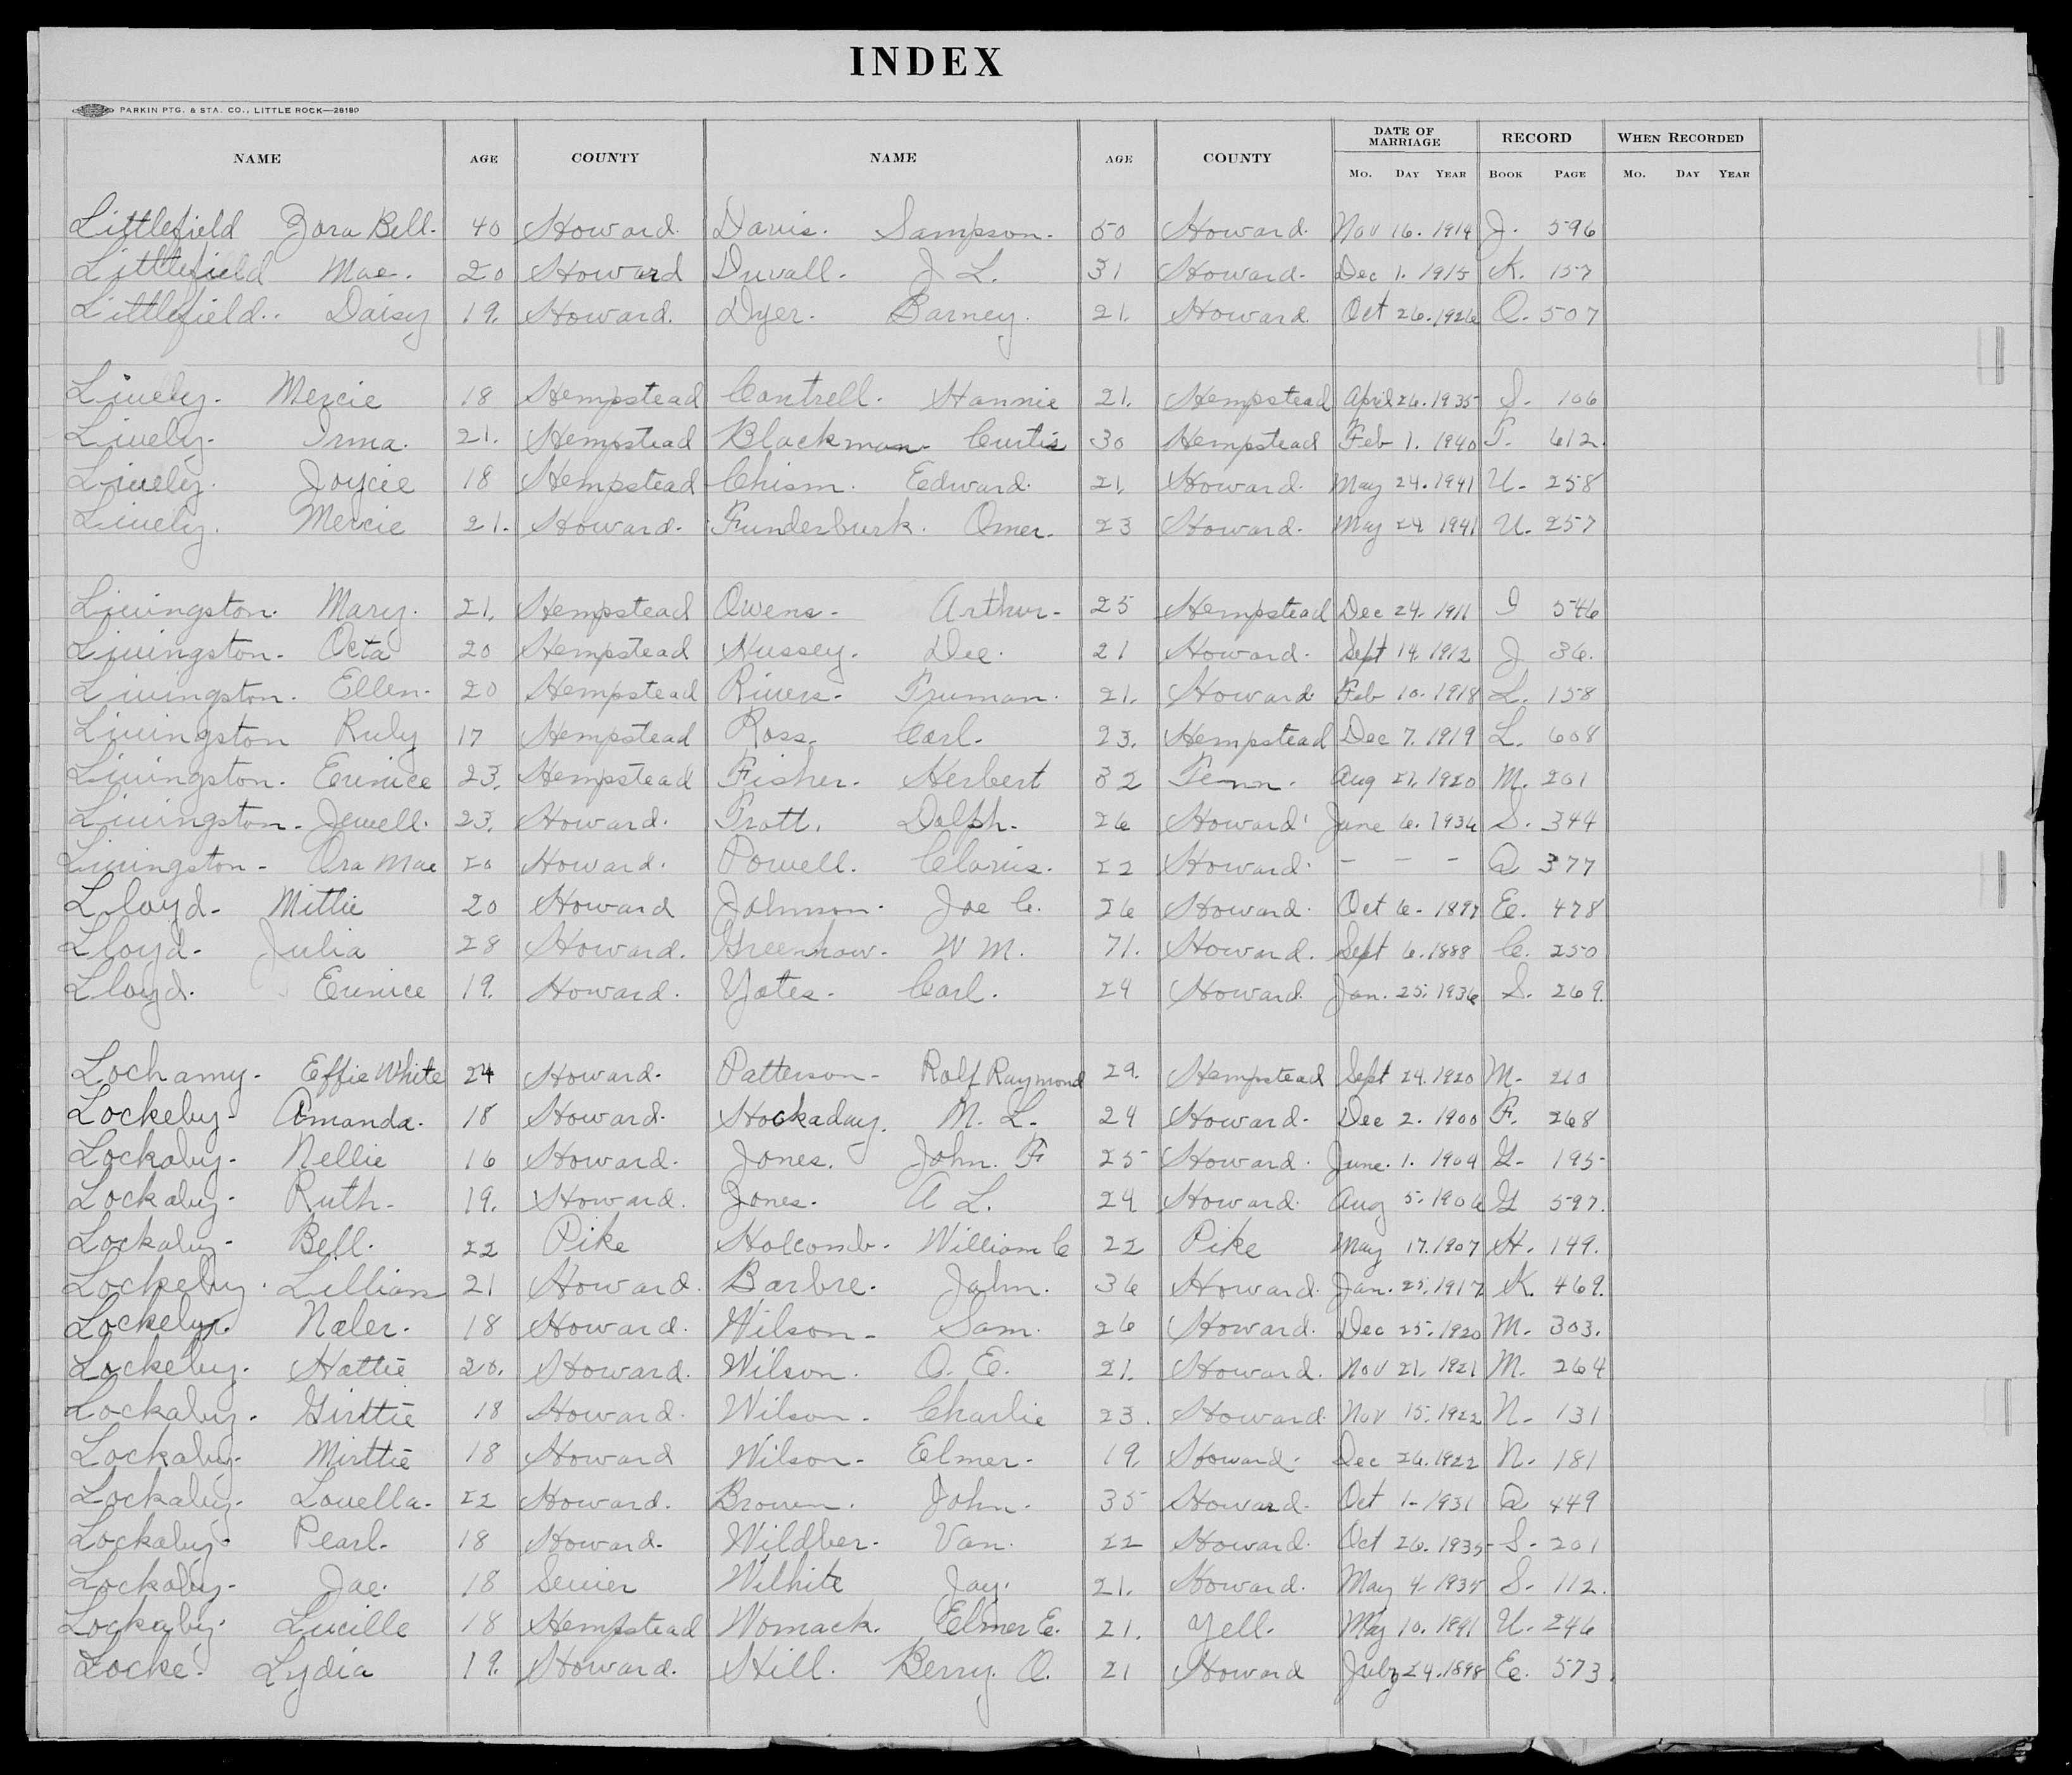 INDEX
PARKIN PTG. & STA. CO., LITTLE ROCK—28180
NAME AGE COUNTY NAME AGE COUNTY DATE OF MARRIAGE RECORD WHEN RECORDED
MO. DAY YEAR BOOK PAGE MO. DAY YEAR
Littlefield Zora Bell. 40 Howard. Davis. Sampson. 50 Howard. Nov 16. 1914 J. 596
Littlefield Mae. 20 Howard Duvall. J L. 31 Howard. Dec 1. 1915 K. 157
Littlefield.. Daisy 19. Howard. Dyer. Barney. 21. Howard. Oct 26. 1926 O. 507
Lively. Mercie 18 Hempstead Cantrell. Hannie 21. Hempstead April 26. 1935 S. 106
Lively. Irma. 21. Hempstead Blackman. Curtis 30 Hempstead Feb 1. 1940 T. 612.
Lively. Joycie 18 Hempstead Chism. Edward. 21. Howard. May 24. 1941 U. 258
Lively. Mercie 21. Howard. Funderburk. Omer. 23 Howard. May 24 1941 U. 257
Livingston. Mary. 21. Hempstead Owens- Arthur- 25 Hempstead Dec 24. 1911 I 546
Livingston- Octa 20 Hempstead Hussey. Dee. 21 Howard. Sept 14. 1912 J 36.
Livingston. Ellen. 20 Hempstead Rivers- Truman. 21. Howard Feb 10. 1918 L. 158
Livingston Ruby 17 Hempstead Ross. Carl. 23. Hempstead Dec 7. 1919 L. 608
Livingston. Eunice 23. Hempstead Fisher. Herbert 32 Tenn. Aug 21. 1920 M. 201
Livingston- Jewell. 23. Howard. Pratt. Dolph. 26 Howard. June 6. 1936 S. 344
Livingston- Ora Mae 20 Howard. Powell. Clovis. 22 Howard. - - - Q 377
Lloyd- Mittie 20 Howard Johnson. Joe C. 26 Howard. Oct 6- 1897 E. 478
Lloyd- Julia 28 Howard. Greenhaw. W M. 71. Howard. Sept 6. 1888 C. 250
Lloyd. Eunice 19. Howard. Yates- Carl. 24 Howard. Jan. 25. 1936 S. 269.
Lochamy- Effie White 24 Howard. Patterson- Rolf Raymond 29. Hempstead Sept 24. 1920 M- 210
Lockeby- Amanda. 18 Howard. Hockaday. M. L. 24 Howard. Dec 2. 1900 F. 268
Lockaby- Nellie 16 Howard. Jones. John. F 25 Howard. June. 1. 1904 G- 195
Lockaby- Ruth- 19. Howard. Jones. A L. 24 Howard. Aug 5. 1906 G 597.
Lockaby- Bell. 22 Pike Holcomb. William C 22 Pike May 17. 1907 H. 149.
Lockeby. Lillian 21 Howard. Barbre. John. 36 Howard. Jan. 25. 1917 K. 469.
Lockeby. Naler. 18 Howard. Wilson- Sam. 26 Howard. Dec 25. 1920 M. 303.
Lockeby. Hattie 20. Howard. Wilson. O. E. 21. Howard. Nov 21. 1921 M. 264
Lockaby. Girttie 18 Howard. Wilson- Charlie 23. Howard. Nov 15. 1922 N- 131
Lockaby- Mirttie 18 Howard Wilson- Elmer- 19. Howard. Dec 26. 1922 N. 181
Lockaby. Louella. 22 Howard. Brown. John. 35 Howard. Oct 1- 1931 Q 449
Lockaby. Pearl. 18 Howard. Wildber. Van. 22 Howard. Oct 26. 1935 S. 201
Lockaby- Jae. 18 Sevier Wilhite Jay. 21. Howard. May 4. 1935 S. 112.
Lockaby. Lucille 18 Hempstead Womack. Elmer E. 21. Yell. May 10. 1941 U. 246
Locke. Lydia 19. Howard. Hill. Berry. O. 21 Howard July 24. 1898 E. 573.